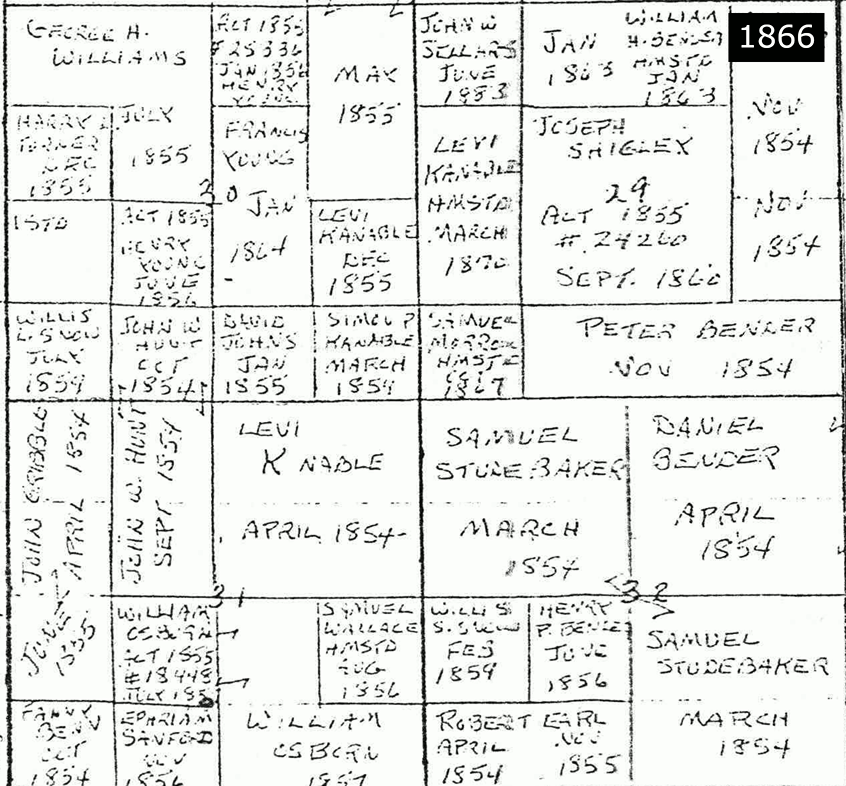 GEORGE H.
WILLIAMS
ACT 1855
HENRY
YOUNG
MAY
1855
JOHN W
SELLARS
JUNE
1883
JAN
1863
WILLIAM
H. BENDER
HMSTD
JAN
1863
1866
HARRY
TURNER
DEC
1855
JULY
1855
FRANCIS
YOUNG
JAN
1864
30
LEVI
KANABLE
HMSTD
MARCH
1870
JOSEPH
SHIGLEY
29
ACT 1855
# 24260
SEPT. 1860
NOV
1854
NOV
1854
ISTD
ACT 1855
HENRY
YOUNG
JUNE
1856
LEVI
KANABLE
DEC
1855
WILLIS
S. SNOW
JULY
1859
JOHN W
HUNT
OCT
1854
DAVID
JOHNS
JAN
1855
SIMON P
KANABLE
MARCH
1854
SAMUEL
HMSTD
1867
PETER BENDER
NOV 1854
JOHN GRIBBLE
APRIL 1854
JUNE
1855
JOHN W. HUNT
SEPT 1854
LEVI
KNABLE
APRIL 1854
SAMUEL
STUDEBAKER
MARCH
1854
DANIEL
BENDER
APRIL
1854
31
32
WILLIAM
OSBORN
ACT 1855
# 18448
JULY
SAMUEL
WALLACE
HMSTD
AUG
1856
WILLIS
S. SNOW
FEB
1859
HENRY
P. BENDER
JUNE
1856
SAMUEL
STUDEBAKER
MARCH
1854
FANNY
BENN
OCT
1854
EPHRIAM
SANFORD
NOV
1856
WILLIAM
OSBORN
1857
ROBERT EARL
APRIL
1854
NOV
1855